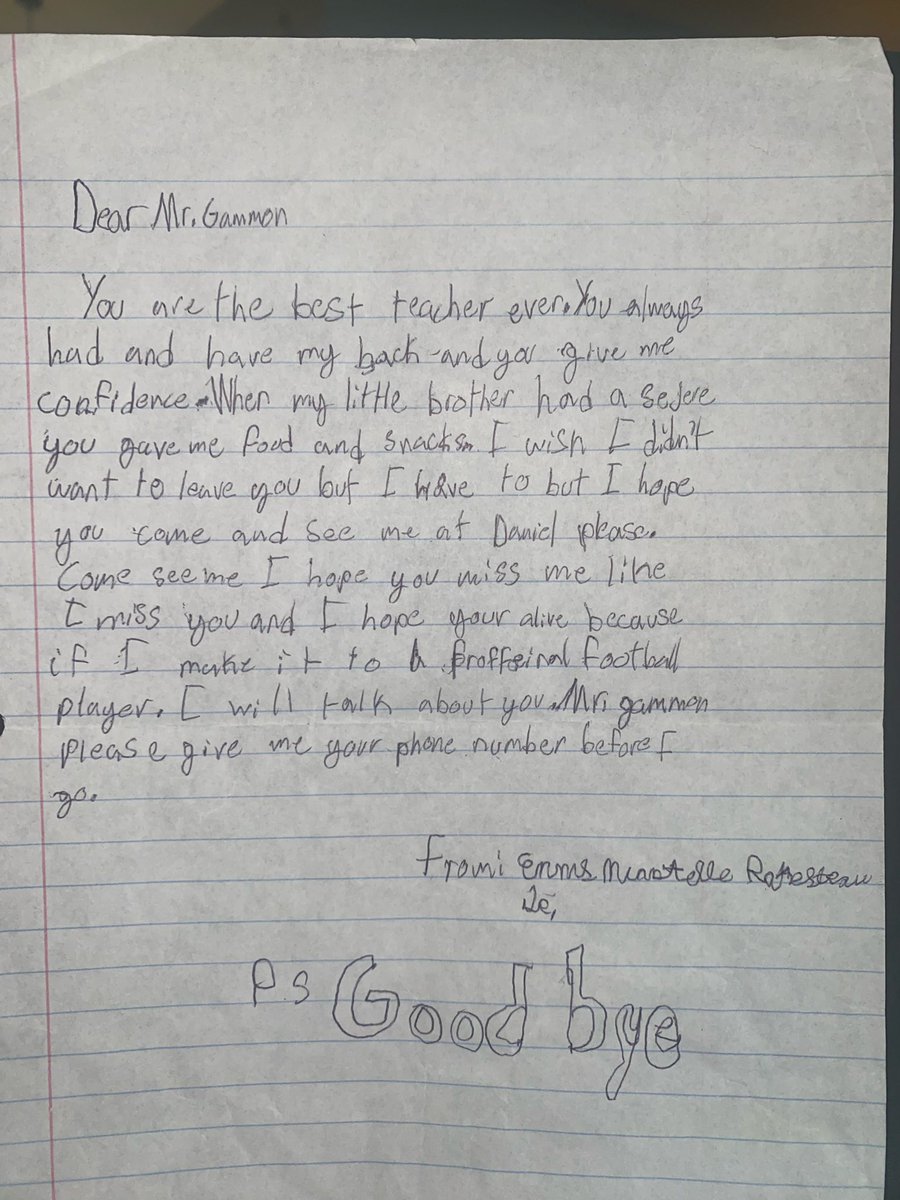 Dear Mr. Gammon
You are the best teacher ever. You always
had and have my back and you give me
confidence. When my little brother had a sejere
you gave me food and snacks. I wish I didn't
want to leave you but I have to but I hope
you come and see me at Daniel please.
Come see me I hope you miss me like
I miss you and I hope your alive because
if I make it to a proffeinal football
player. I will talk about you. Mr. gammon
Please give me your phone number before I
go.
From:
P.S Good bye